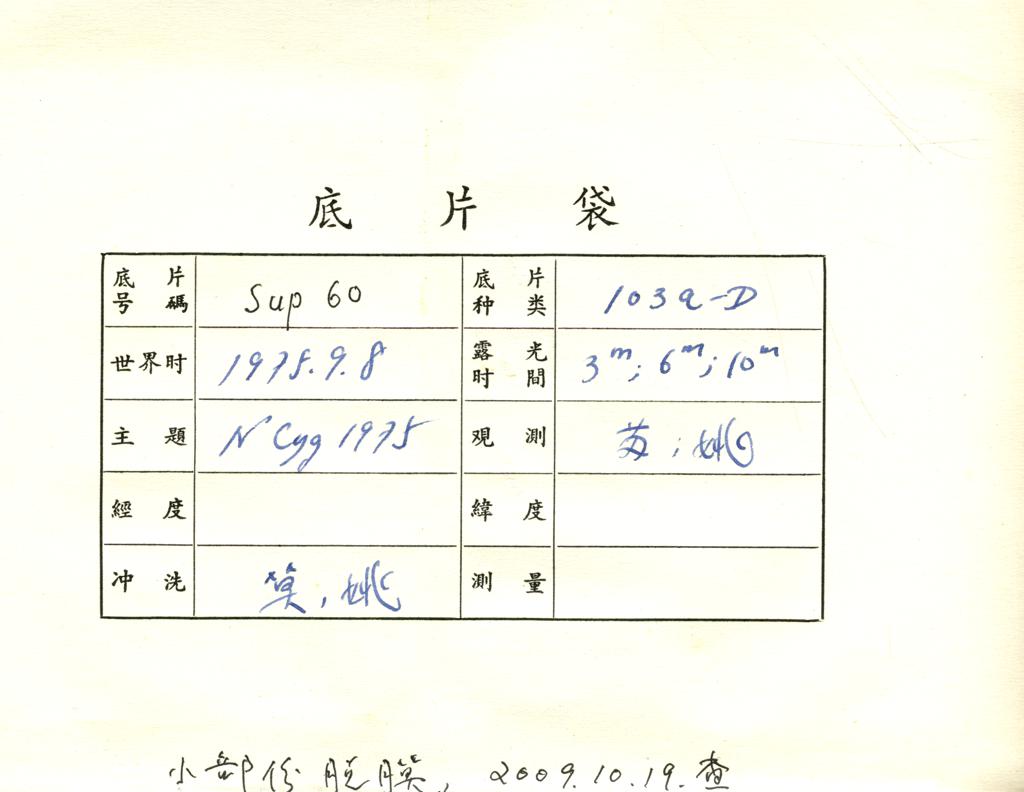 底片袋
底片号碼 Sup 60 底片种类 103a-D
世界时 1975.9.8 露光时間 3ᵐ; 6ᵐ; 10ᵐ
主題 N Cyg 1975 观測 苏; 姚
經度 緯度
冲洗 , 姚 測量
小部份脱膜, 2009.10.19.查